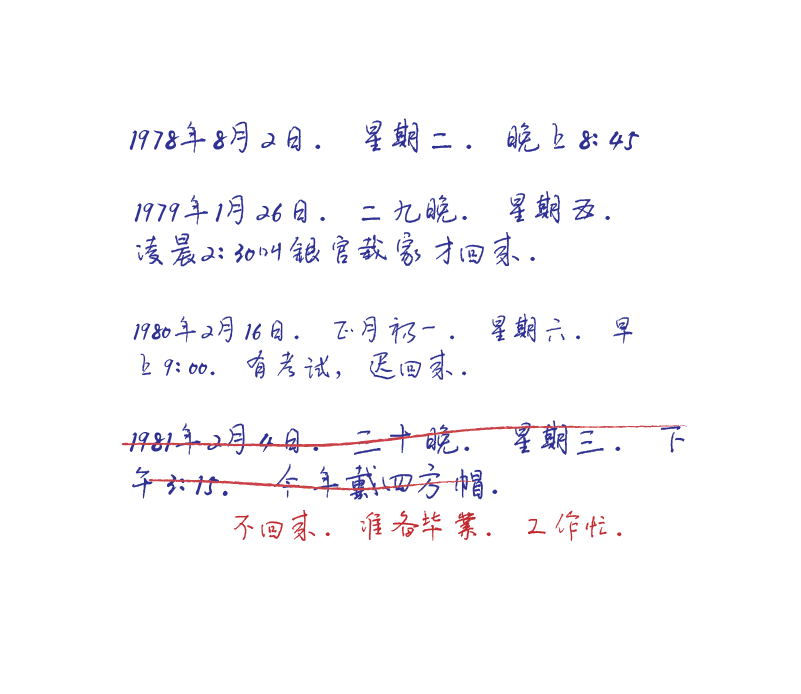 1978年8月2日. 星期二. 晚上8:45
1979年1月26日. 二九晚. 星期五.
凌晨2:30叫銀官裁家才回来.
1980年2月16日. 正月初一. 星期六. 早
上9:00. 有考试, 迟回来.
1981年2月4日. 三十晚. 星期三. 下
午3:15. 今年戴四方帽.
不回来. 准备毕業. 工作忙.